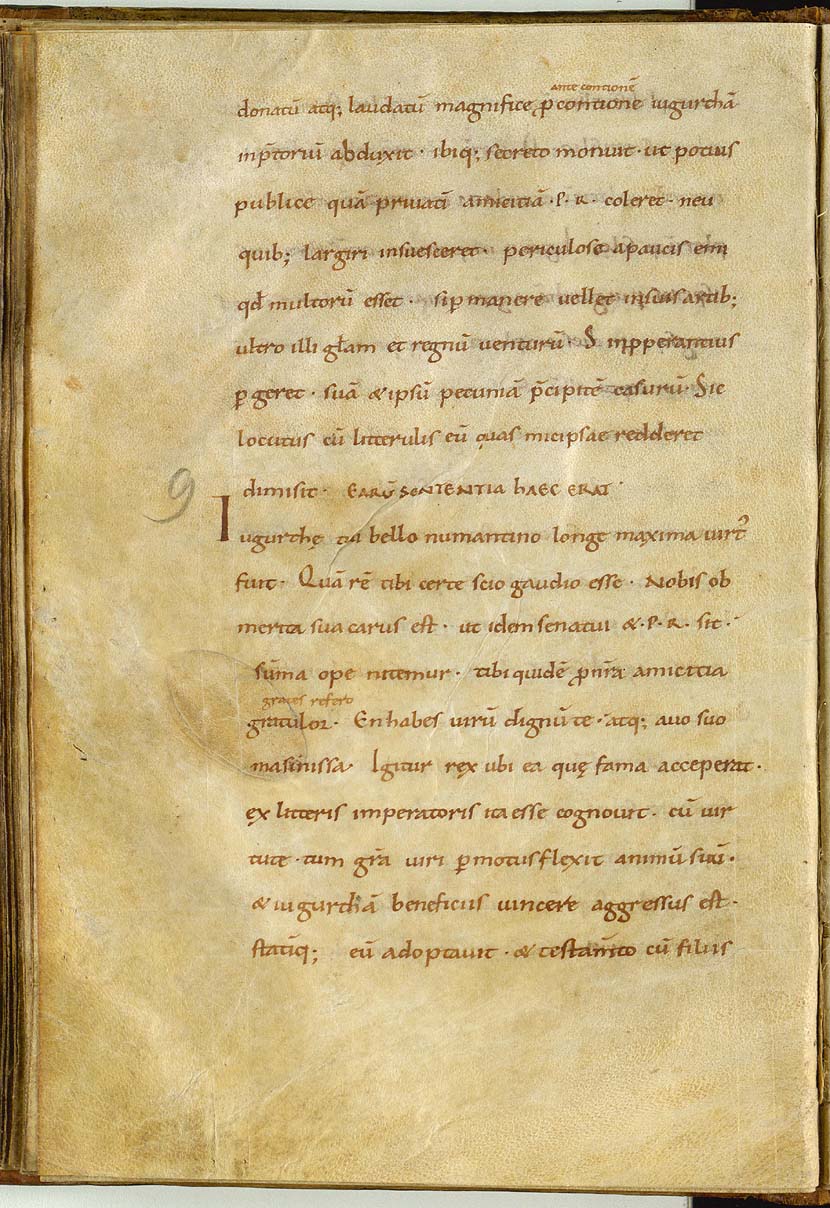 ante contionē
donatū atq; laudatū magnifice p̄ contione iugurthā
inp̄toriū abduxit · ibiq; secreto monuit · ut potius
publice quā priuatī amicitiā · P · R · coleret · neu
quib; largiri insuesceret · periculose apaucis emi
qđ multorū esset · sip manere uellet insuis artib;
ultro illi glam et regnū uenturū · S̄ inpperantius
p geret · suā & ipsū pecuniā p̄cipitē casurū · Sic
locutus cū litterulis eū quas micipsae redderet
9
dimisit · EARŪ SENTENTIA hAEC ERAT ·
Iugurthę tui bello numantino longe maxima uirt᾿
fuit · Quā rē tibi certe scio gaudio esse · Nobis ob
merita sua carus est · ut idem senatui & · P · R · sit ·
sūma ope nitemur · tibi quidē p̄ nr̄a amicitia
grates refero
gratulor · En habes uirū dignū te · atq; auo suo
masinissa · Igitur rex ubi ea quę fama acceperat ·
ex litteris imperatoris ita esse cognouit · cū uir
tute · tum gr̄a uiri pmotus flexit animū suū ·
& iugurthā beneficiis uincere aggressus est ·
statīq; eū adoptauit · & testam̄to cū filiis